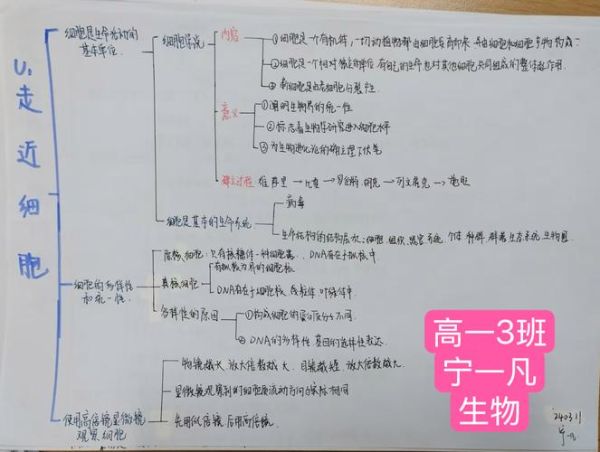 U₁走近细胞
细胞是生命活动的
基本单位
细胞学说
内容
①细胞是一个有机体,一切动植物都由细胞发育而来
②细胞是一个相对独立的单位 有自己的生命也对其他细胞共同组成的整体起作用
③新细胞是由老细胞分裂产生
意义
①阐明生物界的统一性
②标志着生物学研究进入细胞水平
③为生物进化论的确立埋下伏笔
建立过程
→ 列文虎克 →
细胞是基本的生命系统
病毒
生命结构的结构层次:细胞 组织 器官 系统 个体 种群 群落 生态系统 生物圈
细胞的多样性
和统一性
原核细胞:只有核糖体一种细胞器、DNA存在于拟核中
真核细胞
有以核膜为界的细胞核
DNA存在于细胞核、线粒体、叶绿体中
多样性的原因
①构成细胞的蛋白质分子不同
②DNA的多样性 基因的选择性表达
使用高倍镜显微镜
观察细胞
物镜越长 放大倍数越大 目镜越短 放大倍数越大
显微镜观察到的细胞质流动方向与实际相同
先用低倍镜 后用高倍镜
高一3班
宁一凡
生物